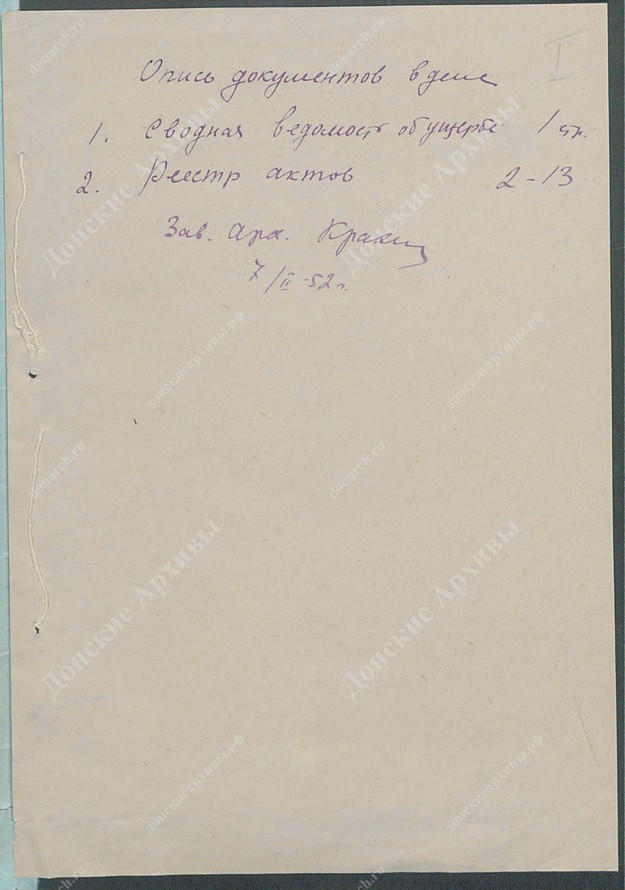 I
Опись документов в деле
1. Сводная ведомость об ущербе 1 стр.
2. Реестр актов 2-13
Зав. Арх.
7/II-52 г.
donarch.ru
donarch.ru
Донские Архивы
Донские Архивы
донскиеархивы.рф
донскиеархивы.рф
donarch.ru
donarch.ru
Донские Архивы
Донские Архивы
донскиеархивы.рф
донскиеархивы.рф
donarch.ru
donarch.ru